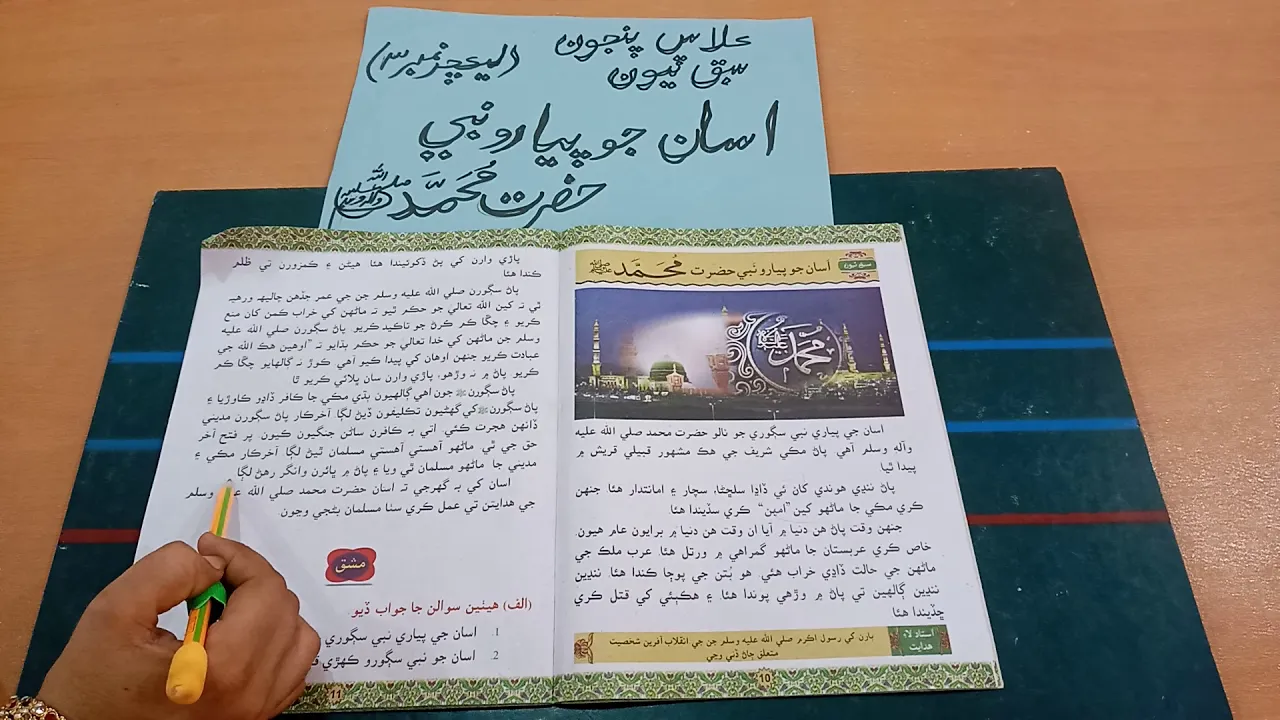 ڪلاس پنجون
سبق ٽيون
(ليڪچر نمبر ۳)
اسان جو پيارو نبي
حضرت مُحَمَّد ﷺ
اسان جو پيارو نبي حضرت مُحَمَّد ﷺ
اسان جي پياري نبي سڳوري جو نالو حضرت محمد صلي الله عليه
وآله وسلم آهي. پاڻ مڪي شريف جي هڪ مشهور قبيلي قريش ۾
پيدا ٿيا
پاڻ ننڍي هوندي کان ئي ڏاڍا سلڇڻا، سچار ۽ امانتدار هئا جنهن
ڪري مڪي جا ماڻهو کين "امين" ڪري سڏيندا هئا
جنهن وقت پاڻ هن دنيا ۾ آيا ان وقت هن دنيا ۾ برايون عام هيون.
خاص ڪري عربستان جا ماڻهو گمراهي ۾ ورتل هئا عرب ملڪ جي
ماڻهن جي حالت ڏاڍي خراب هئي. هو بُتن جي پوڄا ڪندا هئا ننڍين
ننڍين ڳالهين تي پاڻ ۾ وڙهي پوندا هئا ۽ هڪٻئي کي قتل ڪري
ڇڏيندا هئا
استاد لاءِ
هدايت
ٻارن کي رسول اڪرم صلي الله عليه وسلم جن جي انقلاب آفرين شخصيت
متعلق ڄاڻ ڏني وڃي
10
پاڙي وارن کي پڻ ڏکوئيندا هئا هيڻن ۽ ڪمزورن تي ظلم
ڪندا هئا
پاڻ سڳورن صلي الله عليه وسلم جن جي عمر جڏهن چاليهه ورهيه
ٿي ته کين الله تعالي جو حڪم ٿيو ته ماڻهن کي خراب ڪمن کان منع
ڪريو ۽ چڱا ڪم ڪرڻ جو تاڪيد ڪريو. پاڻ سڳورن صلي الله عليه
وسلم جن ماڻهن کي خدا تعالي جو حڪم ٻڌايو ته "اوهين هڪ الله جي
عبادت ڪريو جنهن اوهان کي پيدا ڪيو آهي ڪوڙ نه ڳالهايو چڱا ڪم
ڪريو. پاڻ ۾ نه وڙهو، پاڙي وارن سان ڀلائي ڪريو ٿا
پاڻ سڳورن ﷺ جون اهي ڳالهيون ٻڌي مڪي جا ڪافر ڏاڍو ڪاوڙيا ۽
پاڻ سڳورن ﷺ کي گهڻيون تڪليفون ڏيڻ لڳا آخرڪار پاڻ سڳورن مديني
ڏانهن هجرت ڪئي. اتي به ڪافرن ساڻن جنگيون ڪيون پر فتح آخر
حق جي ٿي ماڻهو آهستي آهستي مسلمان ٿيڻ لڳا آخرڪار مڪي ۽
مديني جا ماڻهو مسلمان ٿي ويا ۽ پاڻ ۾ ڀائرن وانگر رهڻ لڳا
اسان کي به گهرجي ته اسان حضرت محمد صلي الله وسلم
جي هدايتن تي عمل ڪري سٺا مسلمان بڻجي وڃون.
مشق
(الف) هيٺين سوالن جا جواب ڏيو.
1. اسان جي پياري نبي سڳوري
2. اسان جو نبي سڳورو ڪهڙي
11